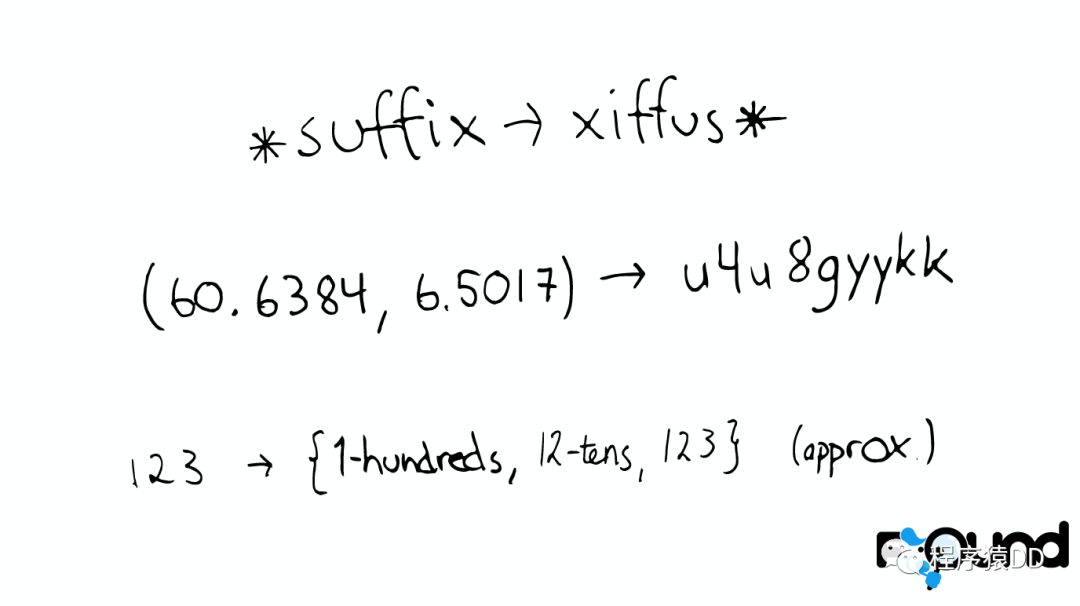 *suffix → xiffus*
(60.6384, 6.5017) → u4u8gyykk
123 → {1-hundreds, 12-tens, 123} (approx.)
程序猿DD